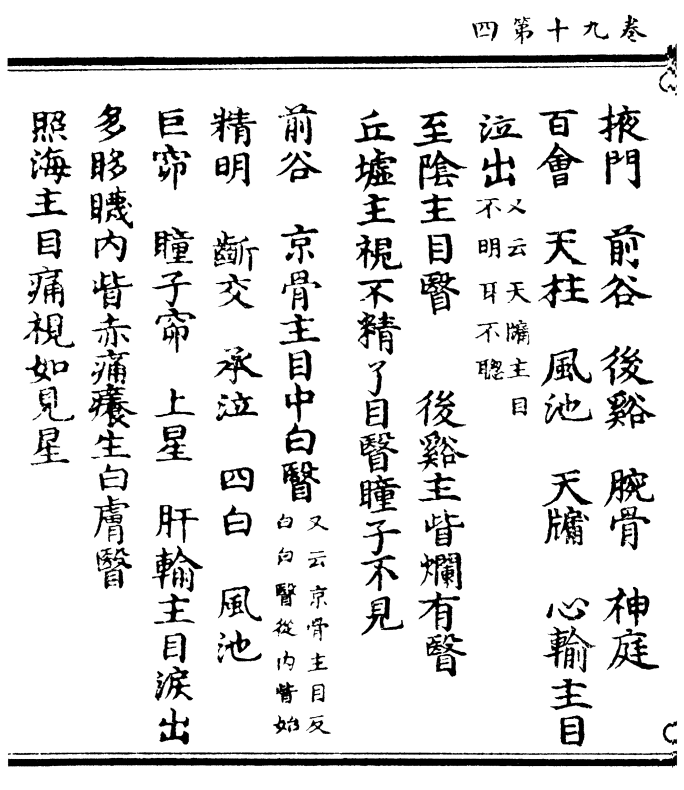 卷九十第四
掖門　前谷　後谿　腕骨　神庭
百會　天柱　風池　天牖　心輸主目
泣出又云天牖主目不明耳不聰
至陰主目瞖　後谿主眥爛有瞖
丘墟主視不精了目瞖瞳子不見
前谷　京骨主目中白瞖又云京骨主目反白白瞖從内眥始
精明　齗交　承泣　四白　風池
巨窌　瞳子窌　上星　肝輸主目淚出
多眵䁾内眥赤痛癢生白膚瞖
照海主目痛視如見星